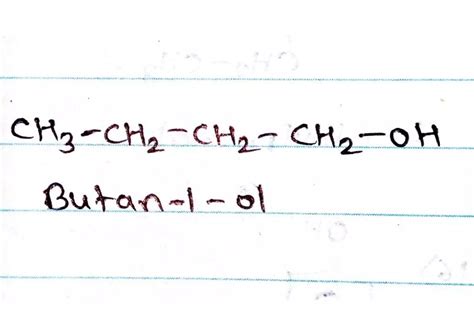 CH₃-CH₂-CH₂-CH₂-OH
Butan-1-ol